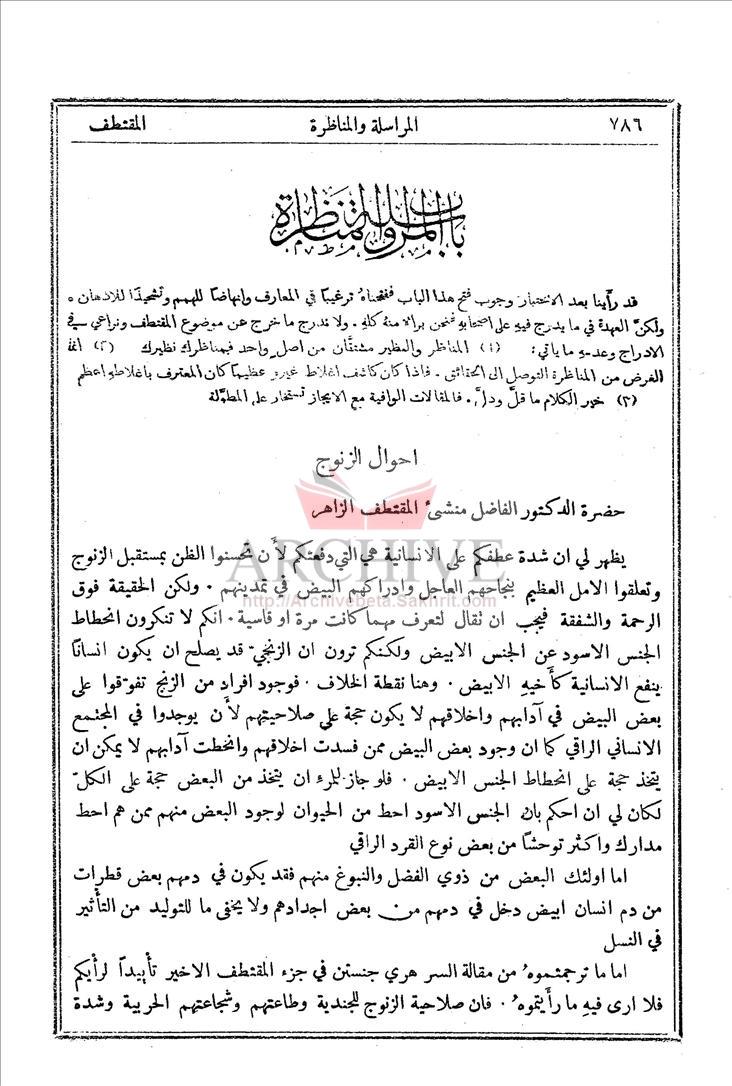 ٧٨٦ المراسلة والمناظرة المقتطف
باب المراسلة والمناظرة
قد رأينا بعد الاختبار وجوب فتح هذا الباب ففتحناهُ ترغيبًا في المعارف وانهاضًا للهمم وتشحيذًا للاذهان ٠
ولكنَّ العهدة في ما يدرج فيهِ على اصحابهِ فنحن برالا منهُ كلهِ . ولا ندرج ما خرج عن موضوع المقتطف ونراعي في
الادراج وعدمهِ ما ياتي: (١) المناظر والنظير مشتقَّان من اصل واحد فمناظرك نظيرك (٢) انما
الغرض من المناظرة التوصل الى الحقائق . فاذا كان كاشف اغلاط غيرهِ عظيمًا كان المعترف باغلاطهِ اعظم
(٣) خير الكلام ما قلَّ ودلَّ . فالمقالات الوافية مع الايجاز تستخار على المطوَّلة
احوال الزنوج
حضرة الدكتور الفاضل منشئ المقتطف الزاهر
ARCHIVE
يظهر لي ان شدة عطفكم على الانسانية هي التي دفعتكم لأَن تحسنوا الظن بمستقبل الزنوج
وتعلقوا الامل العظيم بنجاحهم العاجل وادراكهم البيض في تمدينهم ٠ ولكن الحقيقة فوق
http://Archivebeta.Sakhrit.com
الرحمة والشفقة فيجب ان نقال لتعرف مهما كانت مرة او قاسية ٠ انكم لا تنكرون انحطاط
الجنس الاسود عن الجنس الابيض ولكنكم ترون ان الزنجيّ قد يصلح ان يكون انسانًا
ينفع الانسانية كأَخيهِ الابيض ٠ وهنا نقطة الخلاف ٠ فوجود افراد من الزنج تفوَّقوا على
بعض البيض في آدابهم واخلاقهم لا يكون حجة على صلاحيتهم لأَن يوجدوا في المجتمع
الانساني الراقي كما ان وجود بعض البيض ممن فسدت اخلاقهم وانحطت آدابهم لا يمكن ان
يتخذ حجة على انحطاط الجنس الابيض ٠ فلو جاز للمرء ان يتخذ من البعض حجة على الكلّ
لكان لي ان احكم بان الجنس الاسود احط من الحيوان لوجود البعض منهم ممن هم احط
مدارك واكثر توحشًا من بعض نوع القرد الراقي
اما اولئك البعض من ذوي الفضل والنبوغ منهم فقد يكون في دمهم بعض قطرات
من دم انسان ابيض دخل في دمهم من بعض اجدادهم ولا يخفى ما للتوليد من التأثير
في النسل
اما ما ترجمتموهُ من مقالة السر هري جنستن في جزء المقتطف الاخير تأييداً لرأيكم
فلا ارى فيهِ ما رأيتموهُ ٠ فان صلاحية الزنوج للجندية وطاعتهم وشجاعتهم الحربية وشدة